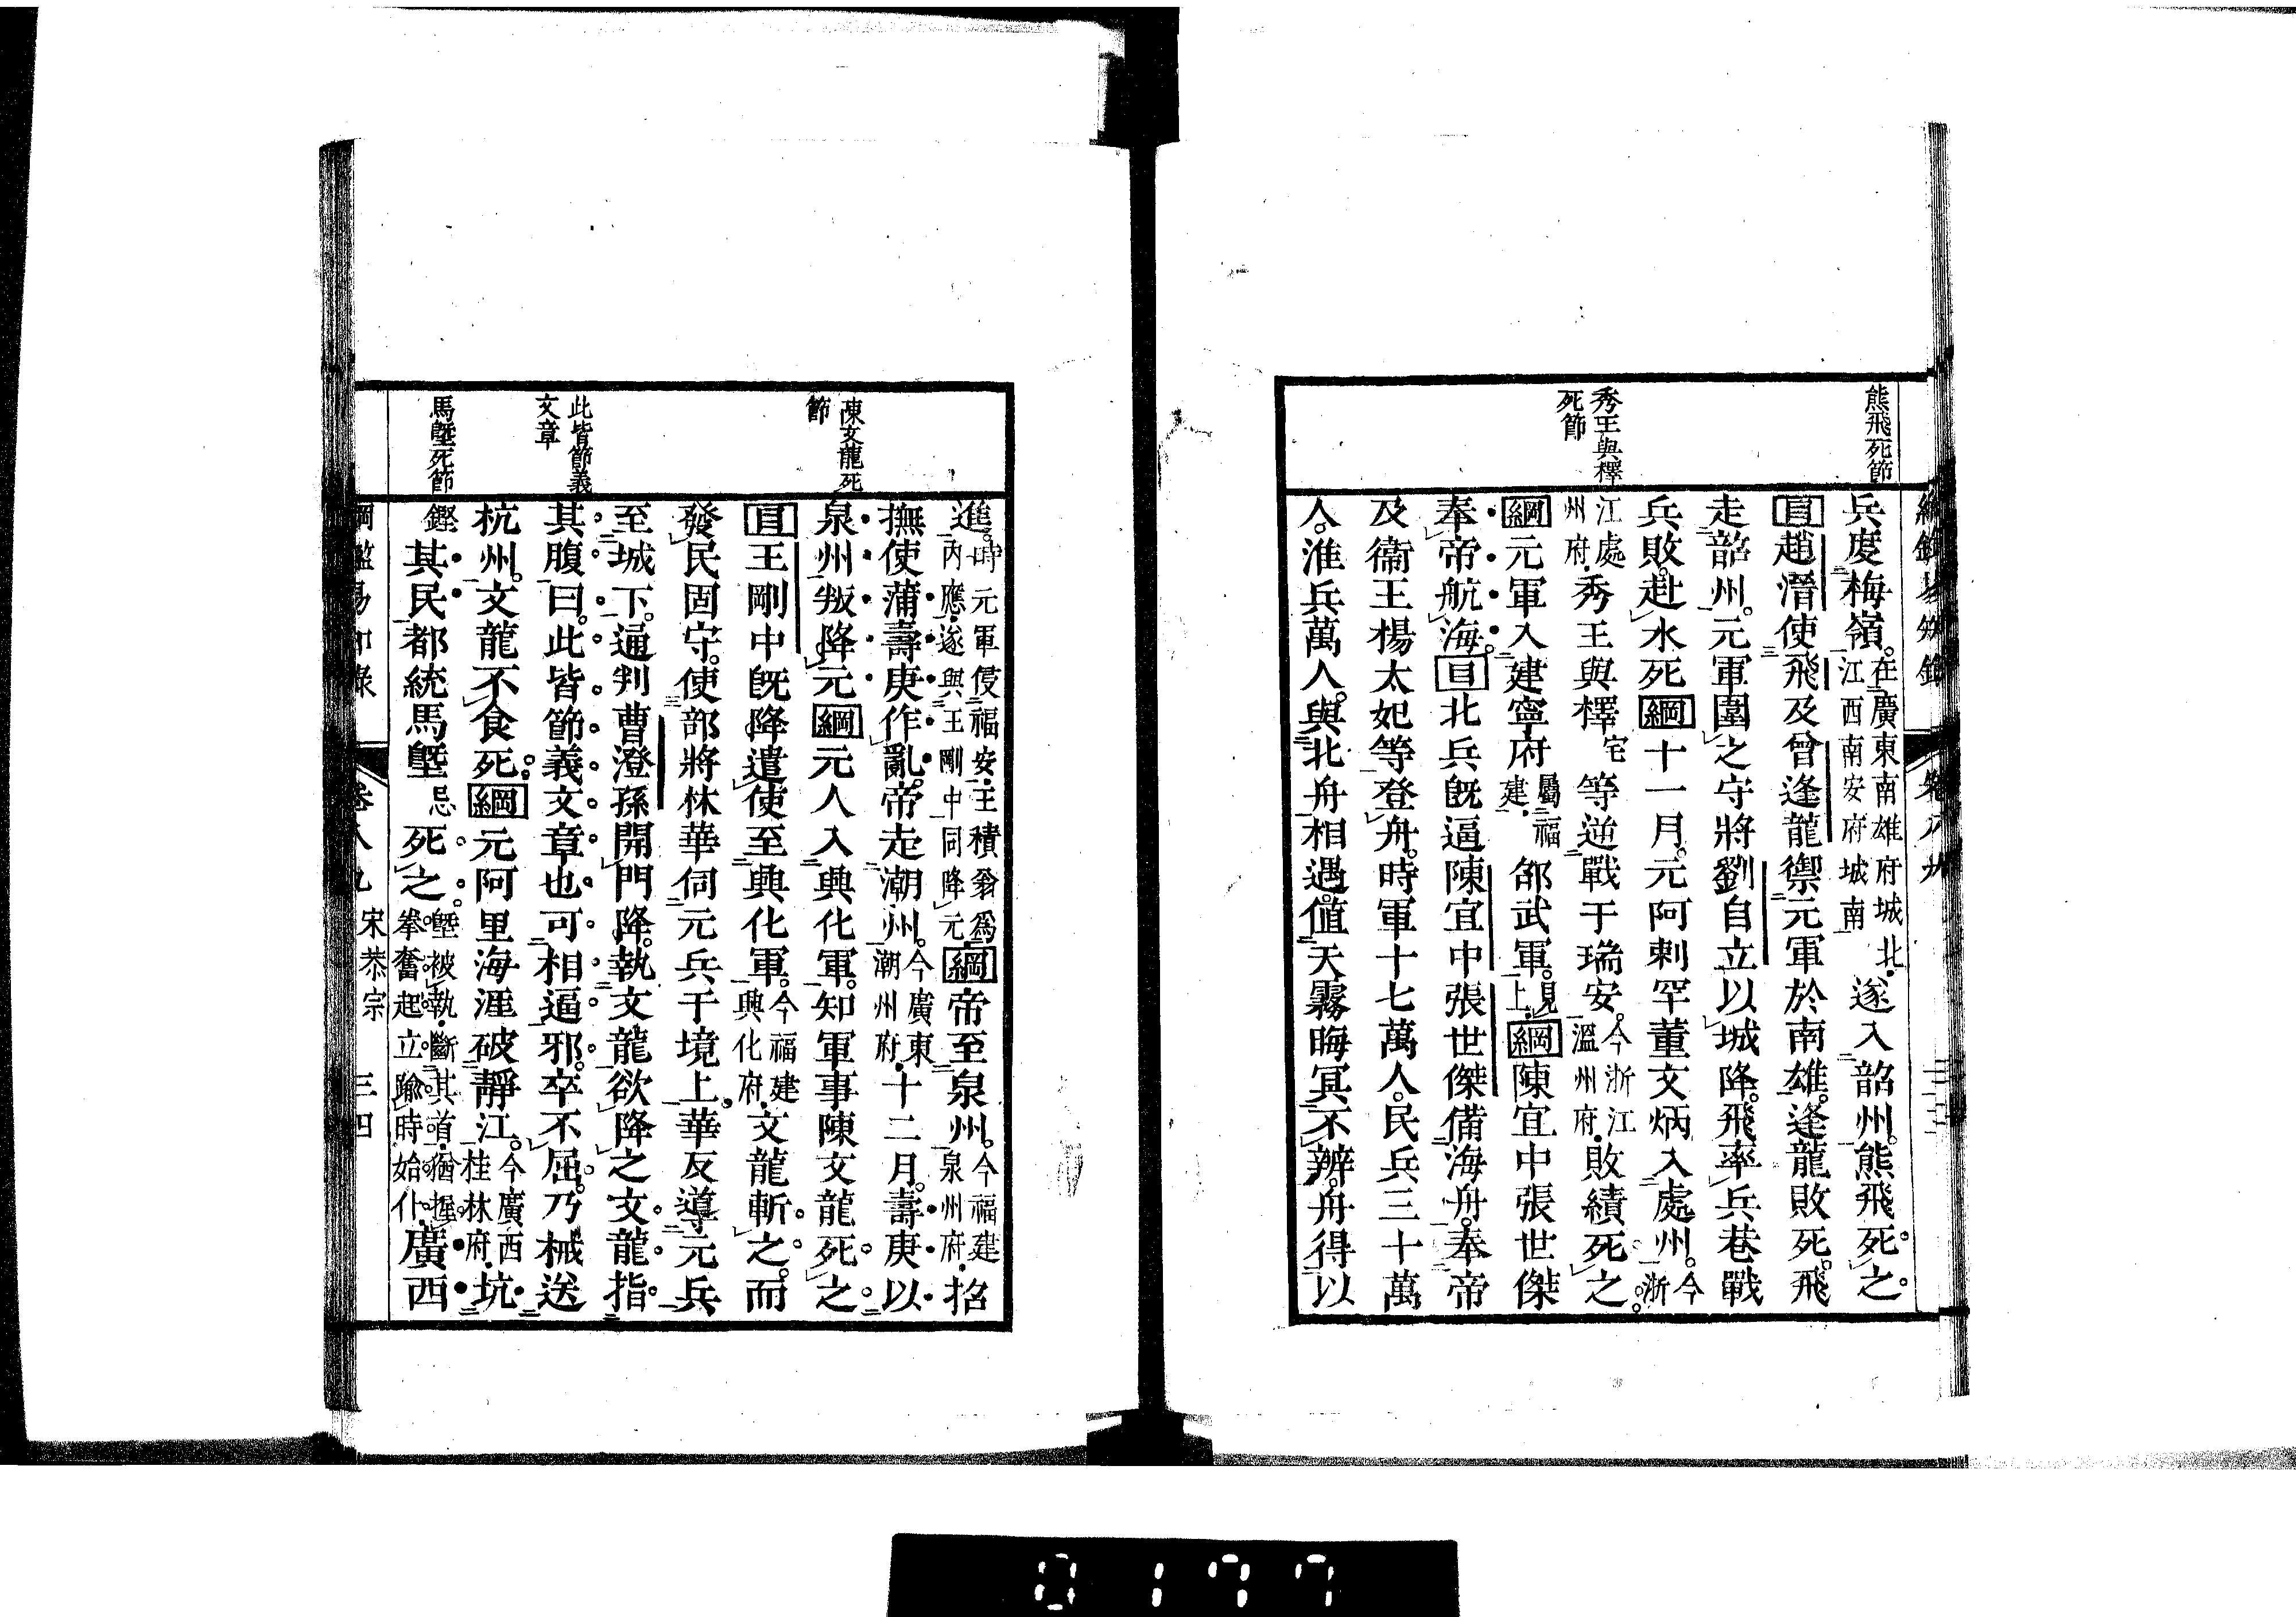 熊飛死節
秀王與檡
死節
兵度梅嶺。在廣東南雄府城北。江西南安府城南遂入韶州。熊飛死之。
目趙溍使飛及曾逢龍禦元軍於南雄。逢龍敗死。飛
走韶州。元軍圍之守將劉自立以城降。飛率兵巷戰
兵敗。赴水死綱十一月。元阿剌罕董文炳入處州。今浙
江處州府。秀王與檡宅等逆戰于瑞安。今浙江溫州府。敗績死之。
綱元軍入建寧府屬福建。邵武軍。見上。綱陳宜中張世傑
奉帝航海。目北兵既逼陳宜中張世傑備海舟。奉帝
及衞王楊太妃等登舟。時軍十七萬人。民兵三十萬
人。淮兵萬人。與北舟相遇。值天霧晦冥。不辨。舟得以
陳文龍死
節
此皆節義
文章
馬塈死節
進。時元軍侵福安。王積翁爲內應。遂與王剛中同降元綱帝至泉州。今福建泉州府。招
撫使蒲壽庚作亂。帝走潮州。今廣東潮州府。十二月。壽庚以
泉州叛降元綱元人入興化軍。知軍事陳文龍死之
目王剛中既降。遣使至興化軍。今福建興化府。文龍斬之。而
發民固守。使部將林華伺元兵于境上。華反導元兵
至城下。通判曹澄孫開門降。執文龍欲降之文龍指
其腹曰。此皆節義文章也可相逼邪。卒不屈。乃械送
杭州。文龍不食死。綱元阿里海涯破靜江。今廣西桂林府。坑
其民都統馬塈忌死之。塈被執。斷其首。猶握拳奮起。立踰時始仆。廣西
綱鑑易知錄
卷八九
宋恭宗
三四
0177